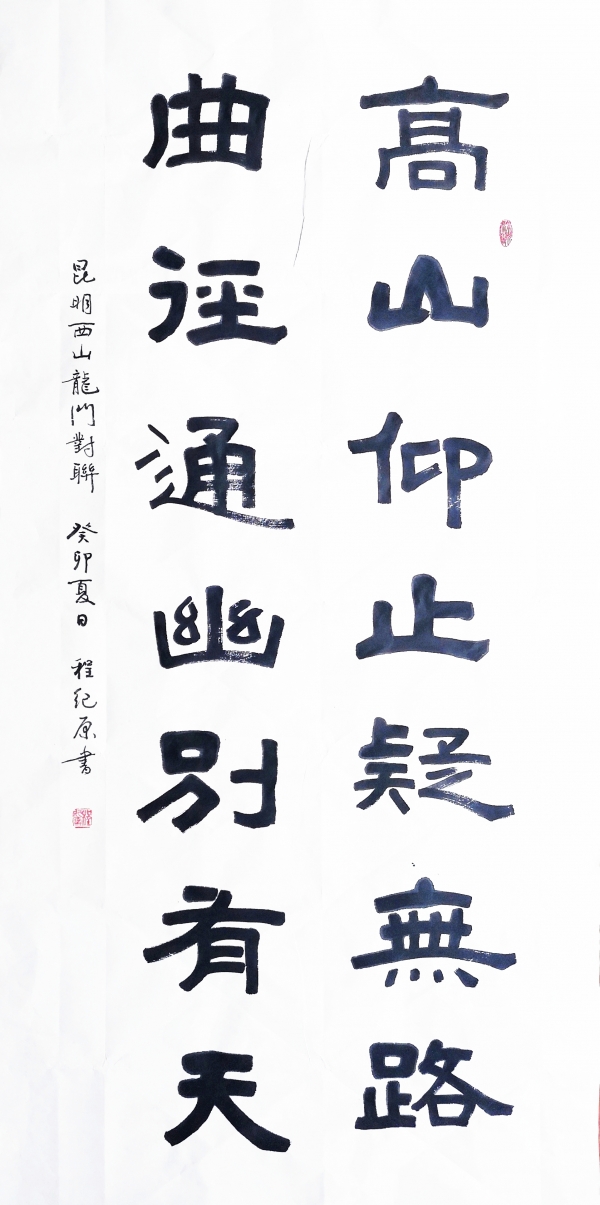 高山仰止疑無路
曲徑通幽別有天
昆明西山龍門對聯 癸卯夏日 程紀原書